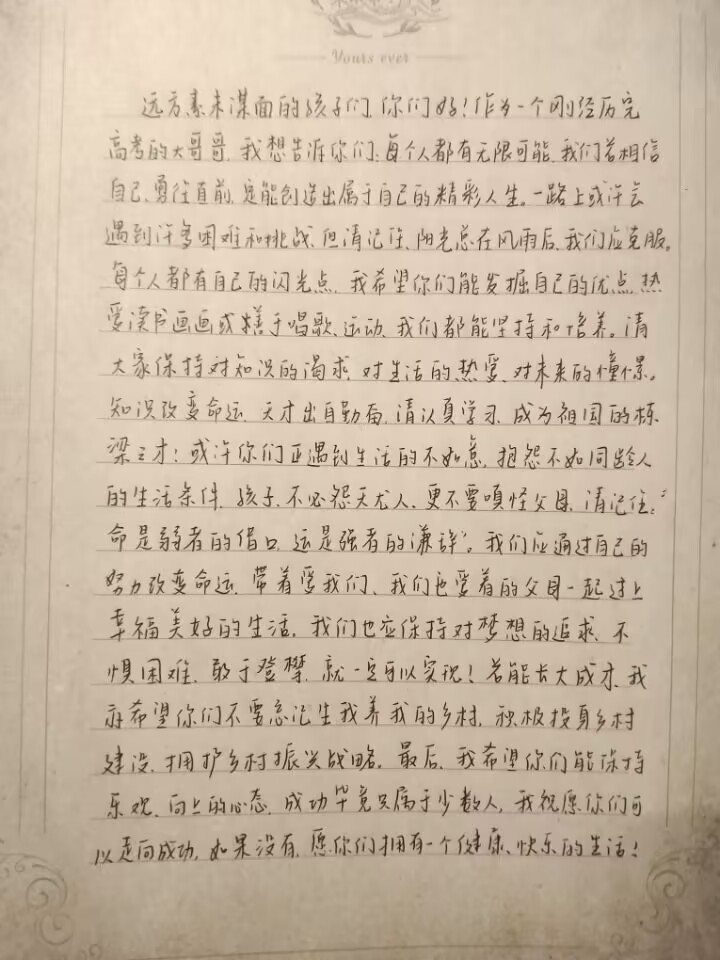 Yours ever
远方素未谋面的孩子们，你们好！作为一个刚经历完
高考的大哥哥，我想告诉你们：每个人都有无限可能，我们若相信
自己、勇往直前，定能创造出属于自己的精彩人生。一路上或许会
遇到许多困难和挑战，但请记住，阳光总在风雨后，我们应克服。
每个人都有自己的闪光点，我希望你们能发掘自己的优点，热
爱读书画画或擅于唱歌、运动，我们都能坚持和培养。请
大家保持对知识的渴求，对生活的热爱，对未来的憧憬。
知识改变命运，天才出自勤奋，请认真学习，成为祖国的栋
梁之才！或许你们正遇到生活的不如意，抱怨不如同龄人
的生活条件，孩子，不必怨天尤人，更不要嗔怪父母，请记住："
命是弱者的借口，运是强者的谦辞"。我们应通过自己的
努力改变命运，带着爱我们、我们也爱着的父母一起过上
幸福美好的生活。我们也应保持对梦想的追求，不
惧困难，敢于登攀，就一定可以实现！若能长大成才，我
亦希望你们不要忘记生我养我的乡村，积极投身乡村
建设，拥护乡村振兴战略。最后，我希望你们能保持
乐观、向上的心态，成功毕竟只属于少数人，我祝愿你们可
以走向成功，如果没有，愿你们拥有一个健康、快乐的生活！